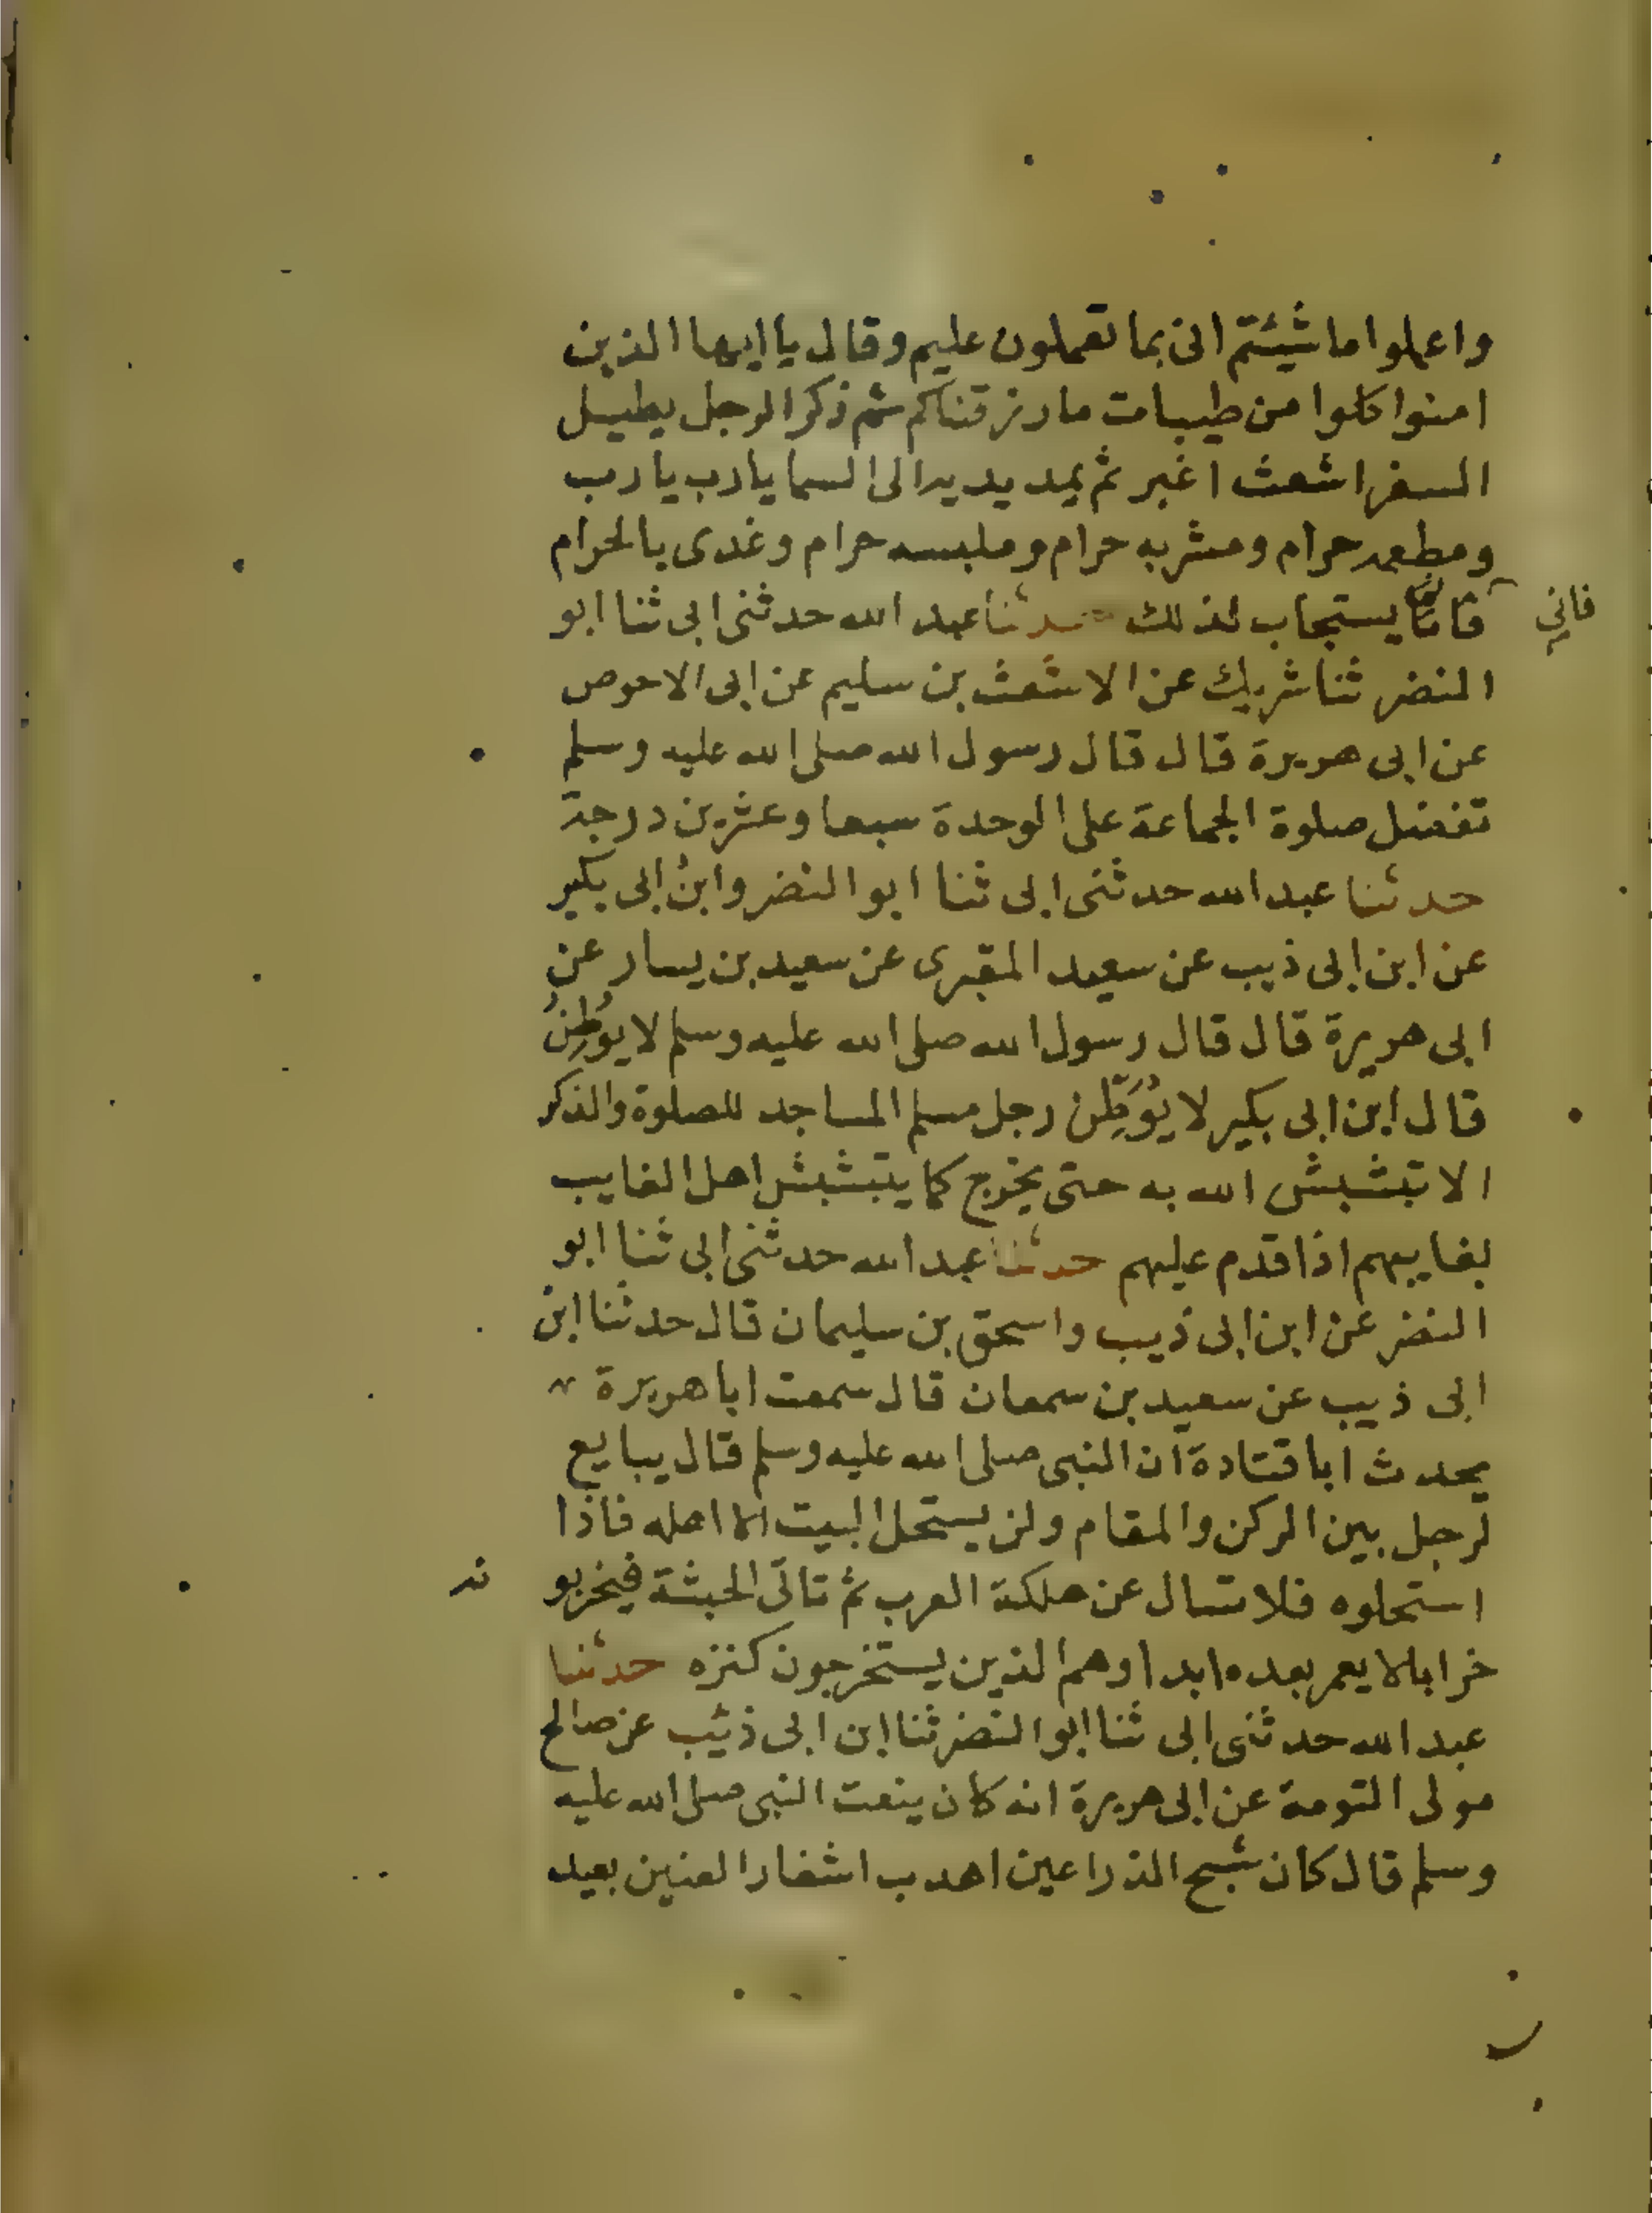 واعملوا ما شيئتم انى بما تعملون عليم وقال يا ايها الذين
امنوا كلوا من طيبات ما رزقناكم ثم ذكر الرجل يطيل
السفر اشعث اغبر ثم يمد يديه الى السما يا رب يا رب
ومطعمه حرام ومشربه حرام وملبسه حرام وغدى بالحرام
يستجاب لذلك حدثنا عبد الله حدثنى ابى ثنا ابو
فانى
النضر ثنا شريك عن الاشعث بن سليم عن ابى الاحوص
عن ابى هريرة قال قال رسول الله صلى الله عليه وسلم
تفضل صلوة الجماعة على الوحدة سبعا وعشرين درجة
حدثنا عبد الله حدثنى ابى ثنا ابو النضر وابنُ ابى بكير
عن ابن ابى ذيب عن سعيد المقبرى عن سعيد بن يسار عن
ابى هريرة قال قال رسول الله صلى الله عليه وسلم لا يُوطِنُ
قال ابن ابى بكير لا يُوَطِّن رجل مسلم المساجد للصلوة والذكر
الا تبشبش الله به حتى يخرج كما يتبشبش اهل الغايب
بغايبهم اذا قدم عليهم حدثنا عبد الله حدثنى ابى ثنا ابو
النضر عن ابن ابى ذيب واسحق بن سليمان قال حدثنا ابن
ابى ذيب عن سعيد بن سمعان قال سمعت ابا هريرة
يحدث ابا قتادة ان النبى صلى الله عليه وسلم قال يبايع
لرجل بين الركن والمقام ولن يستحل البيت الا اهله فاذا
استحلوه فلا تسال عن هلكة العرب ثم تاتى الحبشة فيخربو
نه
خرابا لا يعمر بعده ابدا وهم الذين يستخرجون كنزه حدثنا
عبد الله حدثنى ابى ثنا ابو النضر ثنا ابن ابى ذئيب عن صالح
مولى التومة عن ابى هريرة انه كان ينعت النبى صلى الله عليه
وسلم قال كان شبح الذراعين اهدب اشفار العنين بعيد